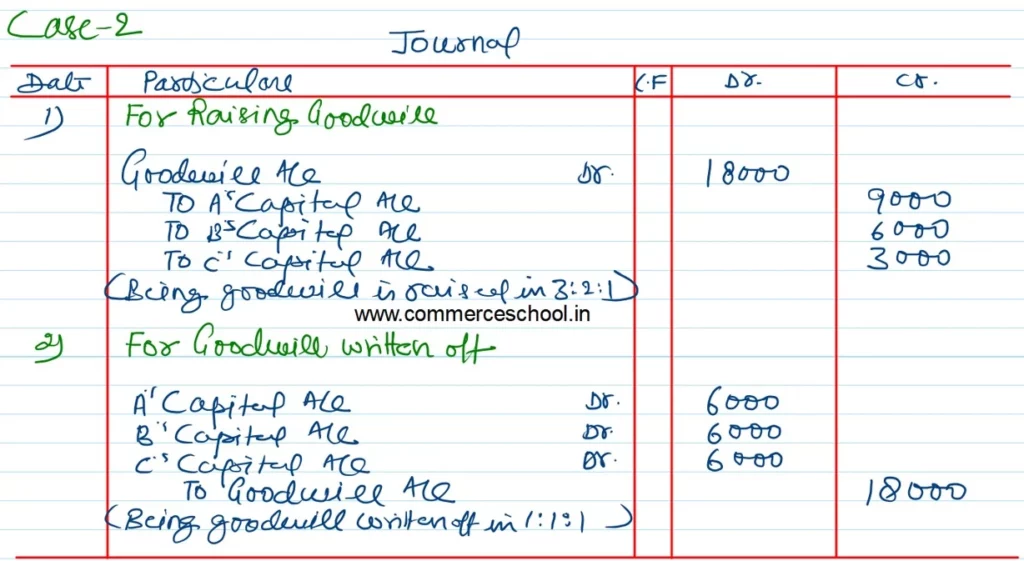 Case-2
Journal
Date Particulars L.F Dr. Cr.
1) For Raising Goodwill
Goodwill A/c Dr. 18000
To A's Capital A/c 9000
To B's Capital A/c 6000
To C's Capital A/c 3000
(Being goodwill is raised in 3:2:1)
www.commerceschool.in
2) For Goodwill written off
A's Capital A/c Dr. 6000
B's Capital A/c Dr. 6000
C's Capital A/c Dr. 6000
To Goodwill A/c 18000
(Being goodwill written off in 1:1:1)